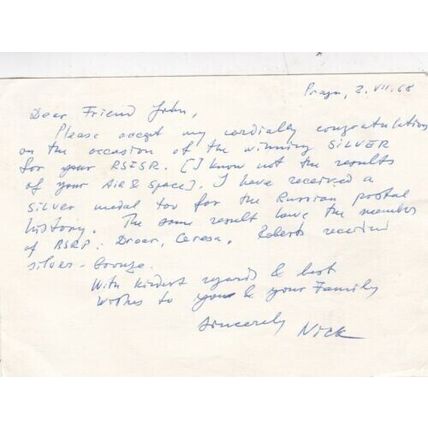 Praga, 2.VII.68
Dear Friend John,
Please accept my cordially congratulations
on the occasion of the winning SILVER
for your RSFSR. [I know not the results
of your Air & Space]. I have received a
silver medal too for the Russian postal
history. The same result have the member
of BSRP: Ceresa, Roberts received
silver-bronze.
With kindest regards & best
wishes to you & your Family
Sincerely Nick